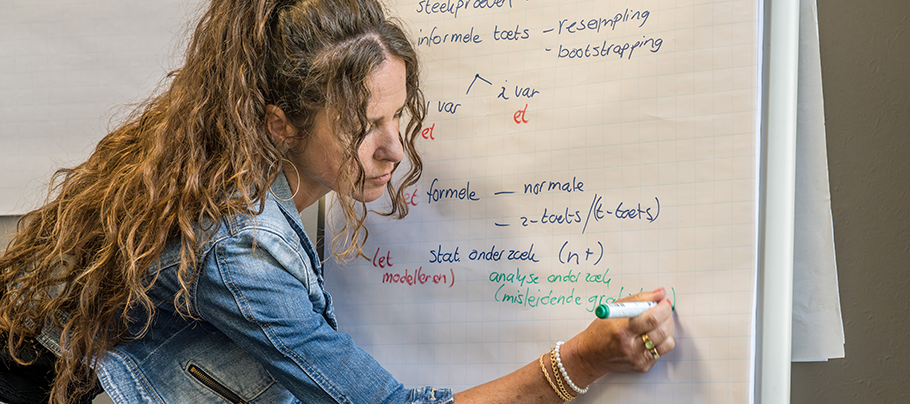 steekproeven
informele toets – resampling
- bootstrapping
var
i var
et
et
et formele – normale
– z-toets/(t-toets)
stat onderzoek (n+)
(et
modelleren)
analyse onderzoek
(misleidende